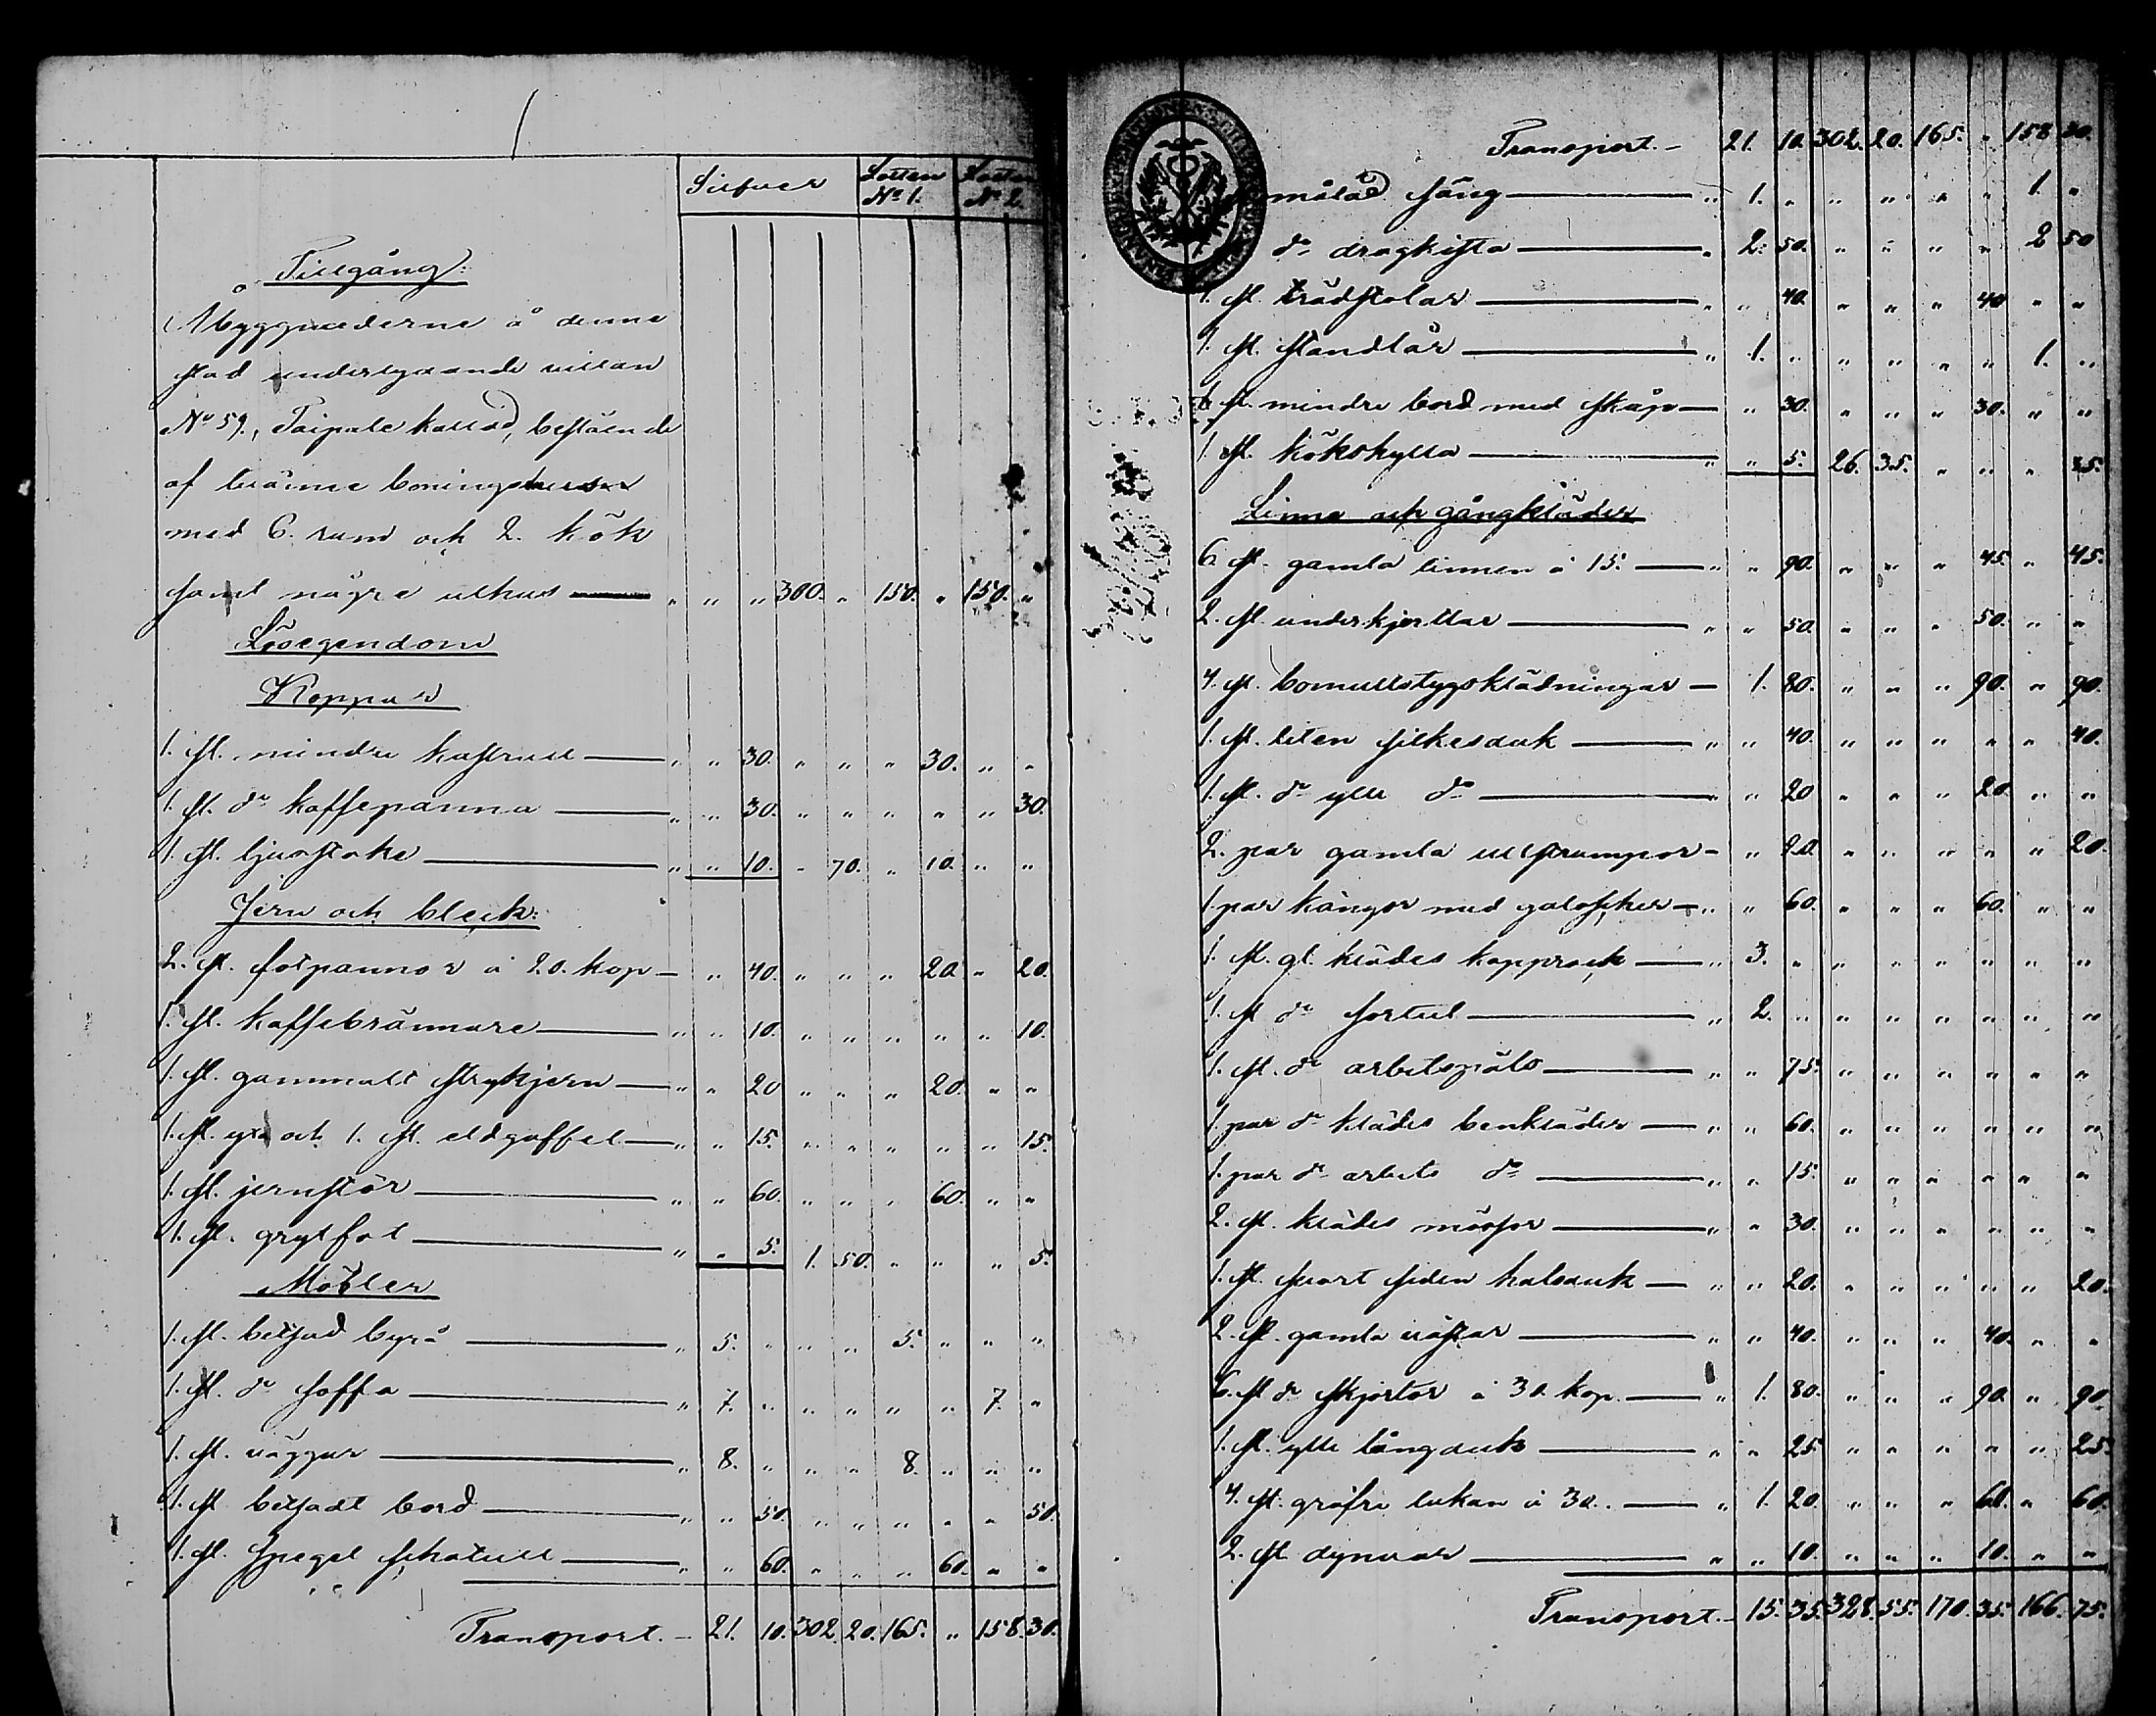 Silfver Lotten Nº 1. Lotten Nº 2.
Tillgång:
Åbyggnaderne å denne
stad underlydande villan
Nº 59., Taipale kallad, bestående
af tvänne boningshus
med 6. rum och 2. kök
samt några uthus — " " " 300. " 150. " 150. "
Lösegendom
Koppar
1. st. mindre kastrull — " " 30. " " " 30. " "
1. st. dº kaffepanna — " " 30. " " " " " 30.
1. st. ljusstake — " " 10. " 70. " 10. " "
Jern och bleck:
2. st. fotpannor à 20. kop — " 40. " " " 20. " 20.
1. st. kaffebrännare — " " 10. " " " " " 10.
1. st. gammalt strykjern — " " 20 " " " 20. " "
1. st. yxa och 1. st. eldgaffel — " " 15. " " " " " 15.
1. st. jernstör — " " 60. " " " 60. " "
1. st. grytfot — " " 5. 1. 50. " " " 5.
Möbler
1. st. betsad byrå — " 5. " " " 5. " " "
1. st. dº soffa — " 7. " " " " " 7. "
1. st. väggur — " 8. " " " 8. " " "
1. st betsadt bord — " " 50. " " " " " 50.
1. st. Spegel schatull — " " 60. " " " 60. " "
Transport. — 21. 10. 302. 20. 165. " 158. 30.
Transport. — 21. 10. 302. 20. 165. " 158 30.
målad säng — " 1. " " " " " 1. "
dº dragkista — " 2. 50. " " " " 2 50
1. st. trädstolar — " " 40. " " " 40 " "
1. st. standtår — " 1. " " " " " 1. "
1. st. mindre bord med skåp — " 30. " " " 30. " "
1. st. kökshylla — " " 5. 26. 35. " " " 5.
Linne och gångkläder
6. st. gamla linnen à 15. — " " 90. " " " 45. " 45.
2. st. underkjortlar — " " 50. " " " 50. " "
4. st. bomullstygsklädningar — 1. 80. " " " 90. " 90.
1. st. liten silkesduk — " " 40. " " " " " 40.
1. st. dº ylle dº — " " 20 " " " 20. " "
2. par gamla ullstrumpor — " 20 " " " " " 20.
1 par kängor med galoscher — " " 60. " " " 60. " "
1. st. gl. klädes kapprock — " 3. " " " " " " "
1. st dº sortut — " 2. " " " " " " "
1. st. dº arbetspäls — " " 75. " " " " " "
1. par dº klädes benkläder — " " 60. " " " " " "
1. par dº arbets dº — " " 15. " " " " " "
2. st. klädes mössor — " " 30. " " " " " "
1. st. svart siden halsduk — " " 20. " " " " " 20.
2. st. gamla västar — " " 40. " " " 40. " "
6. st dº skjortor à 30. kop. — " 1. 80. " " " 90. " 90
1. st. ylle långduk — " " 25. " " " " " 25.
4. st. gröfre lakan à 30. — " 1. 20. " " " 60. " 60.
2. st dynvar — " " 10. " " " 10. " "
Transport. — 15. 35. 328. 55. 170. 35. 166. 75.